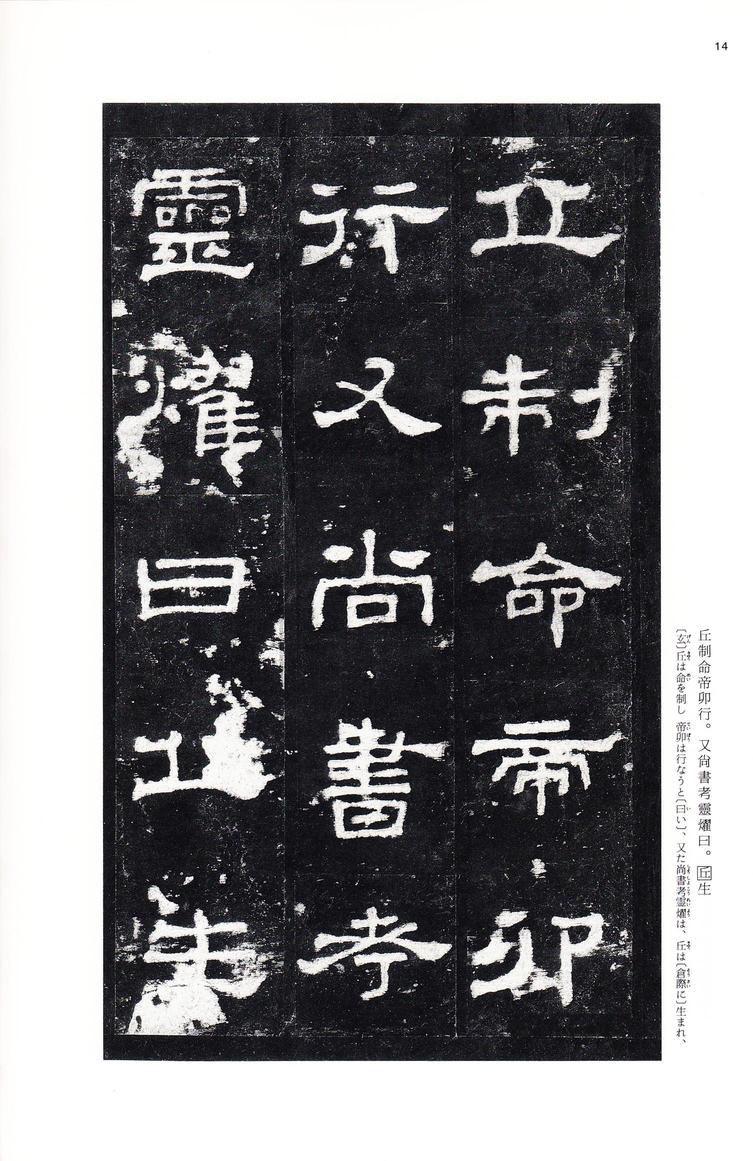 14
丘制命帝卯
行又尚書考
靈燿曰丘生
丘制命帝卯行。又尙書考靈燿曰。丘生
〔玄〕丘は命を制し 帝卯は行なうと〔曰い〕、又た尚書考霊燿は、丘は〔倉際に〕生まれ、